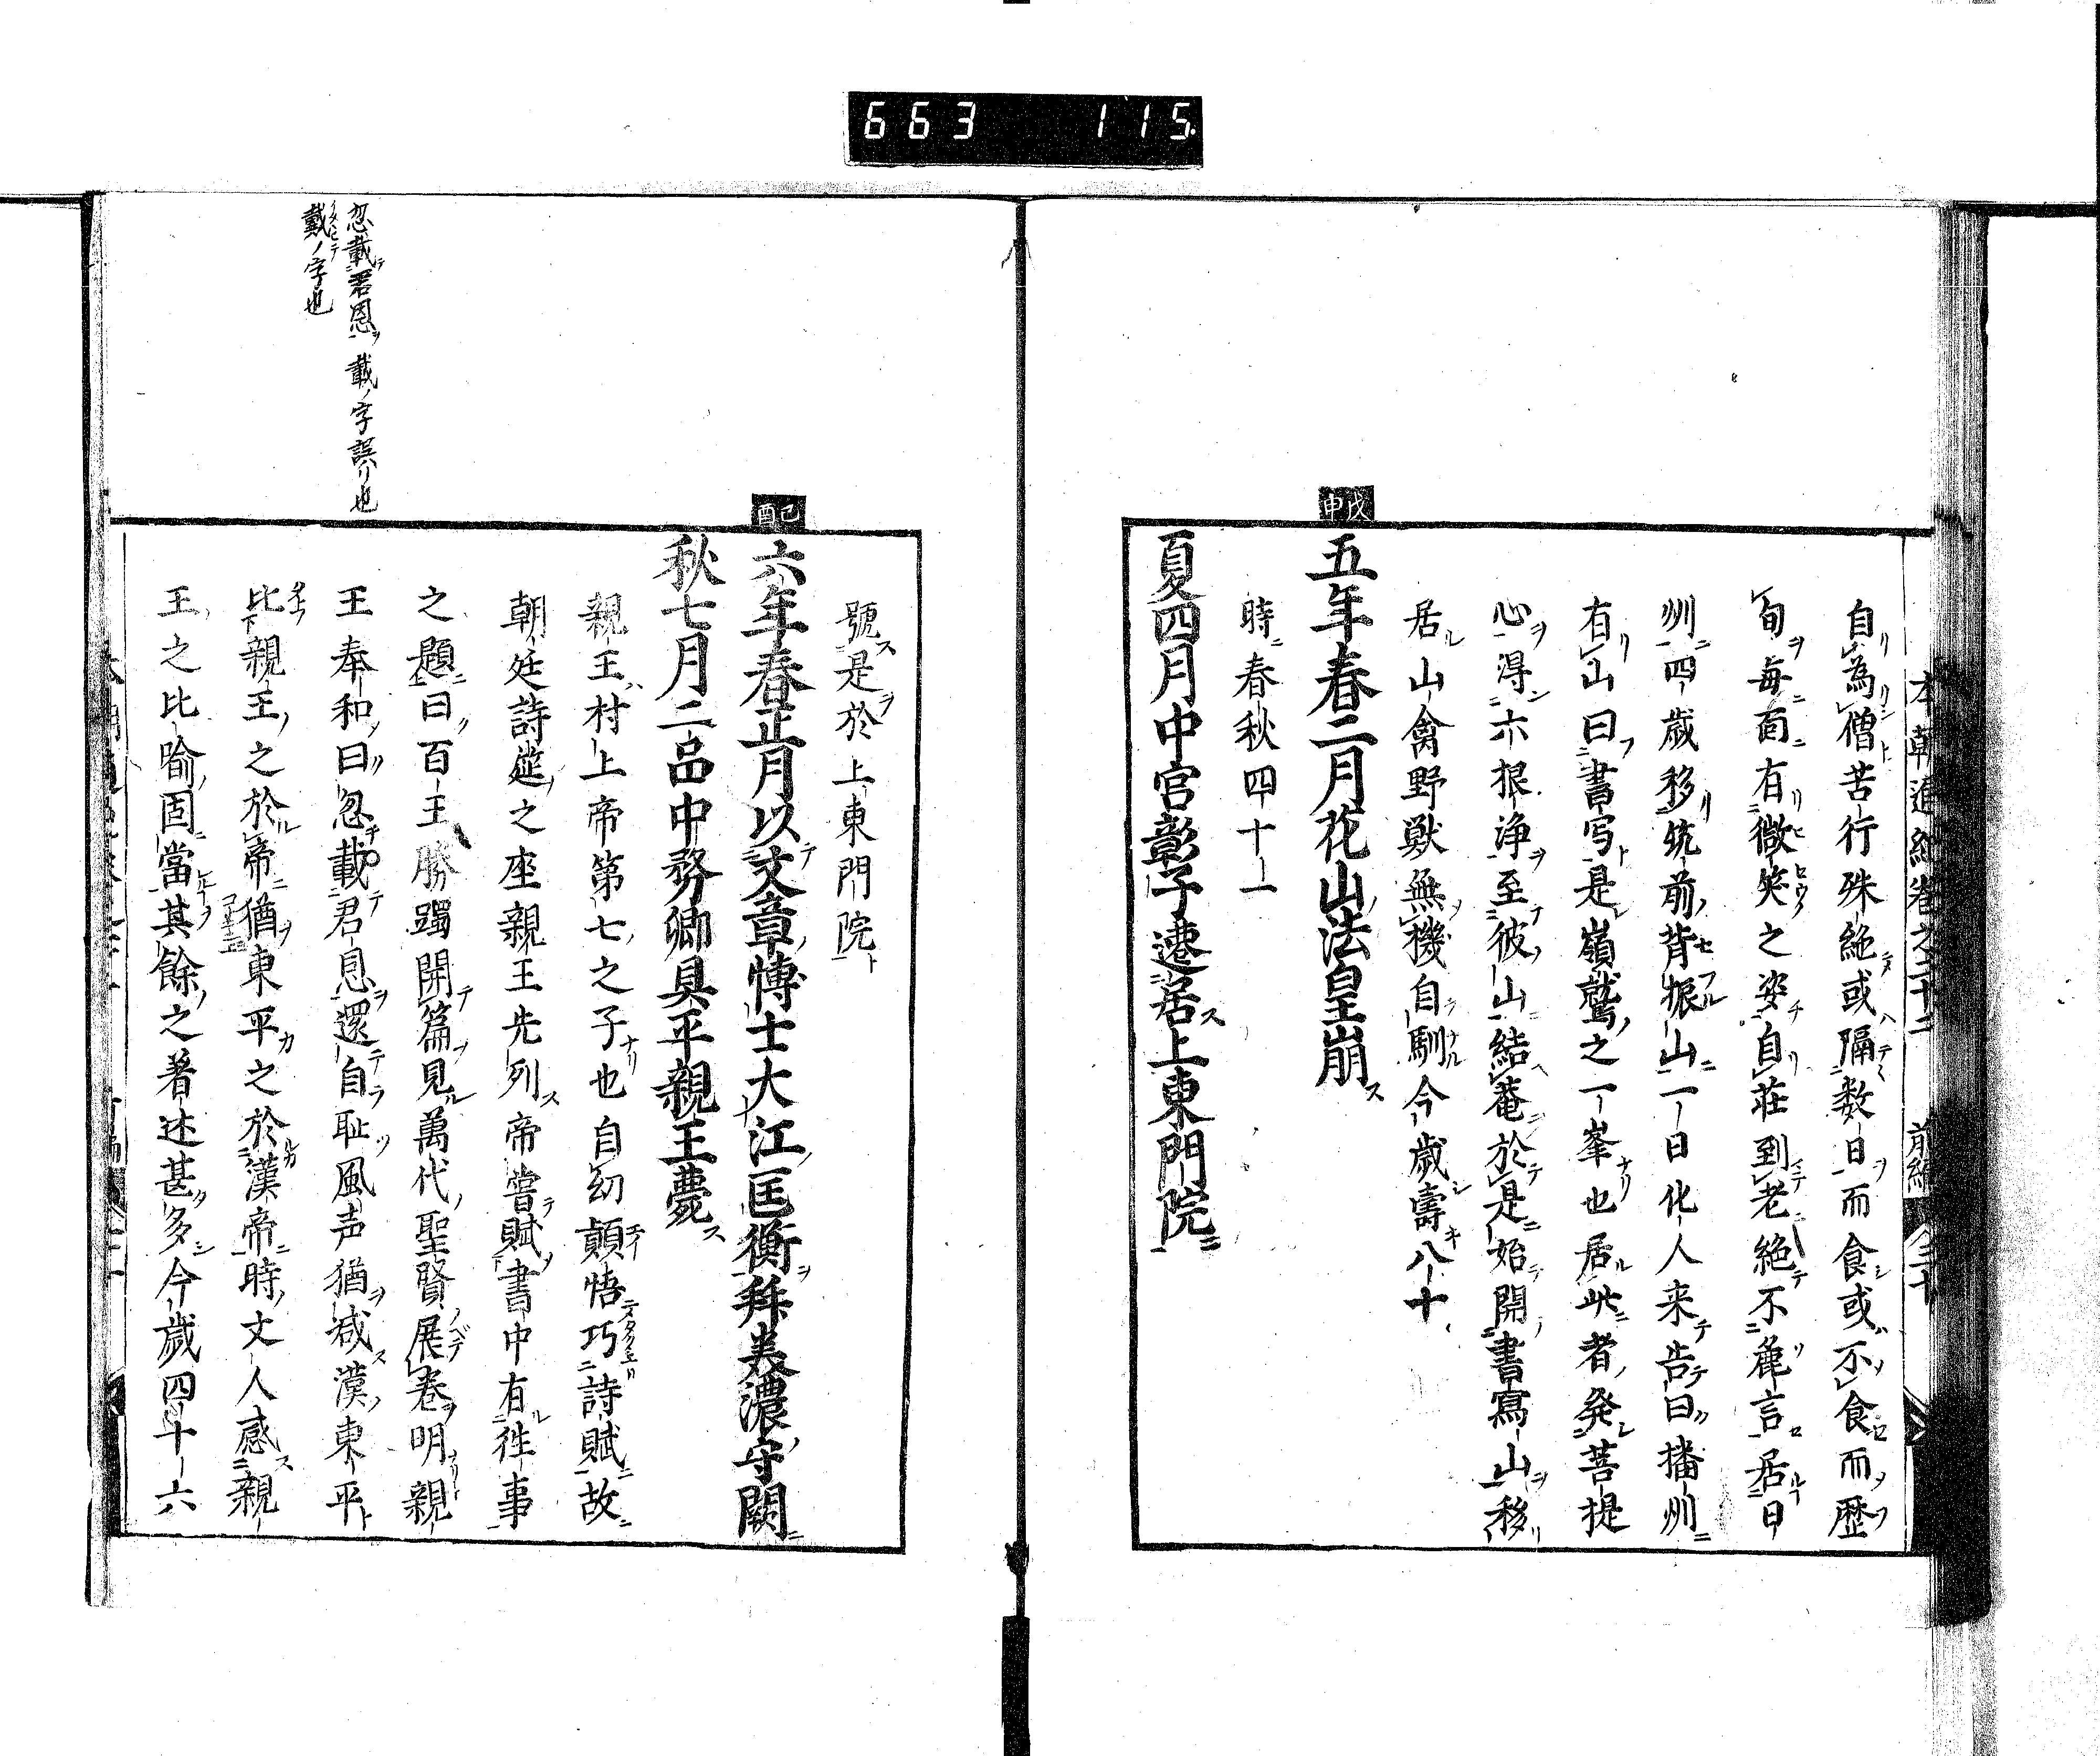 663 115
本朝通紀卷之二十二 前編 三十
自為僧苦行殊絶或隔数日而食或不食而歴
旬毎面有微笑之姿自莊到老絶不麁言居日
州四歳移筑前背振山一日化人来告曰播州
有山曰書写是嶺鷲之一峯也居此者発菩提
心淂六根浄至彼山結菴於是始開書寫山移
居山禽野獣無機自馴今歳壽八十
戊申
五年春二月花山法皇崩
時春秋四十一
夏四月中宮彰子遷居上東門院
號是於上東門院
己酉
六年春正月以文章博士大江匡衡拜美濃守闕
秋七月二品中務卿具平親王薨
親王村上帝第七之子也自幼顛悟巧詩賦故
朝廷詩莚之座親王先列帝嘗賦書中有徃事
之題曰百王勝躅開篇見萬代聖賢展卷明親
王奉和曰忽載君恩還自恥風声猶减漢東平
比親王之於帝猶東平之於漢帝時文人感親
王之比喻固當其餘之著述甚多今歳四十六
忽載君恩載ノ字誤リ也
戴ノ字也